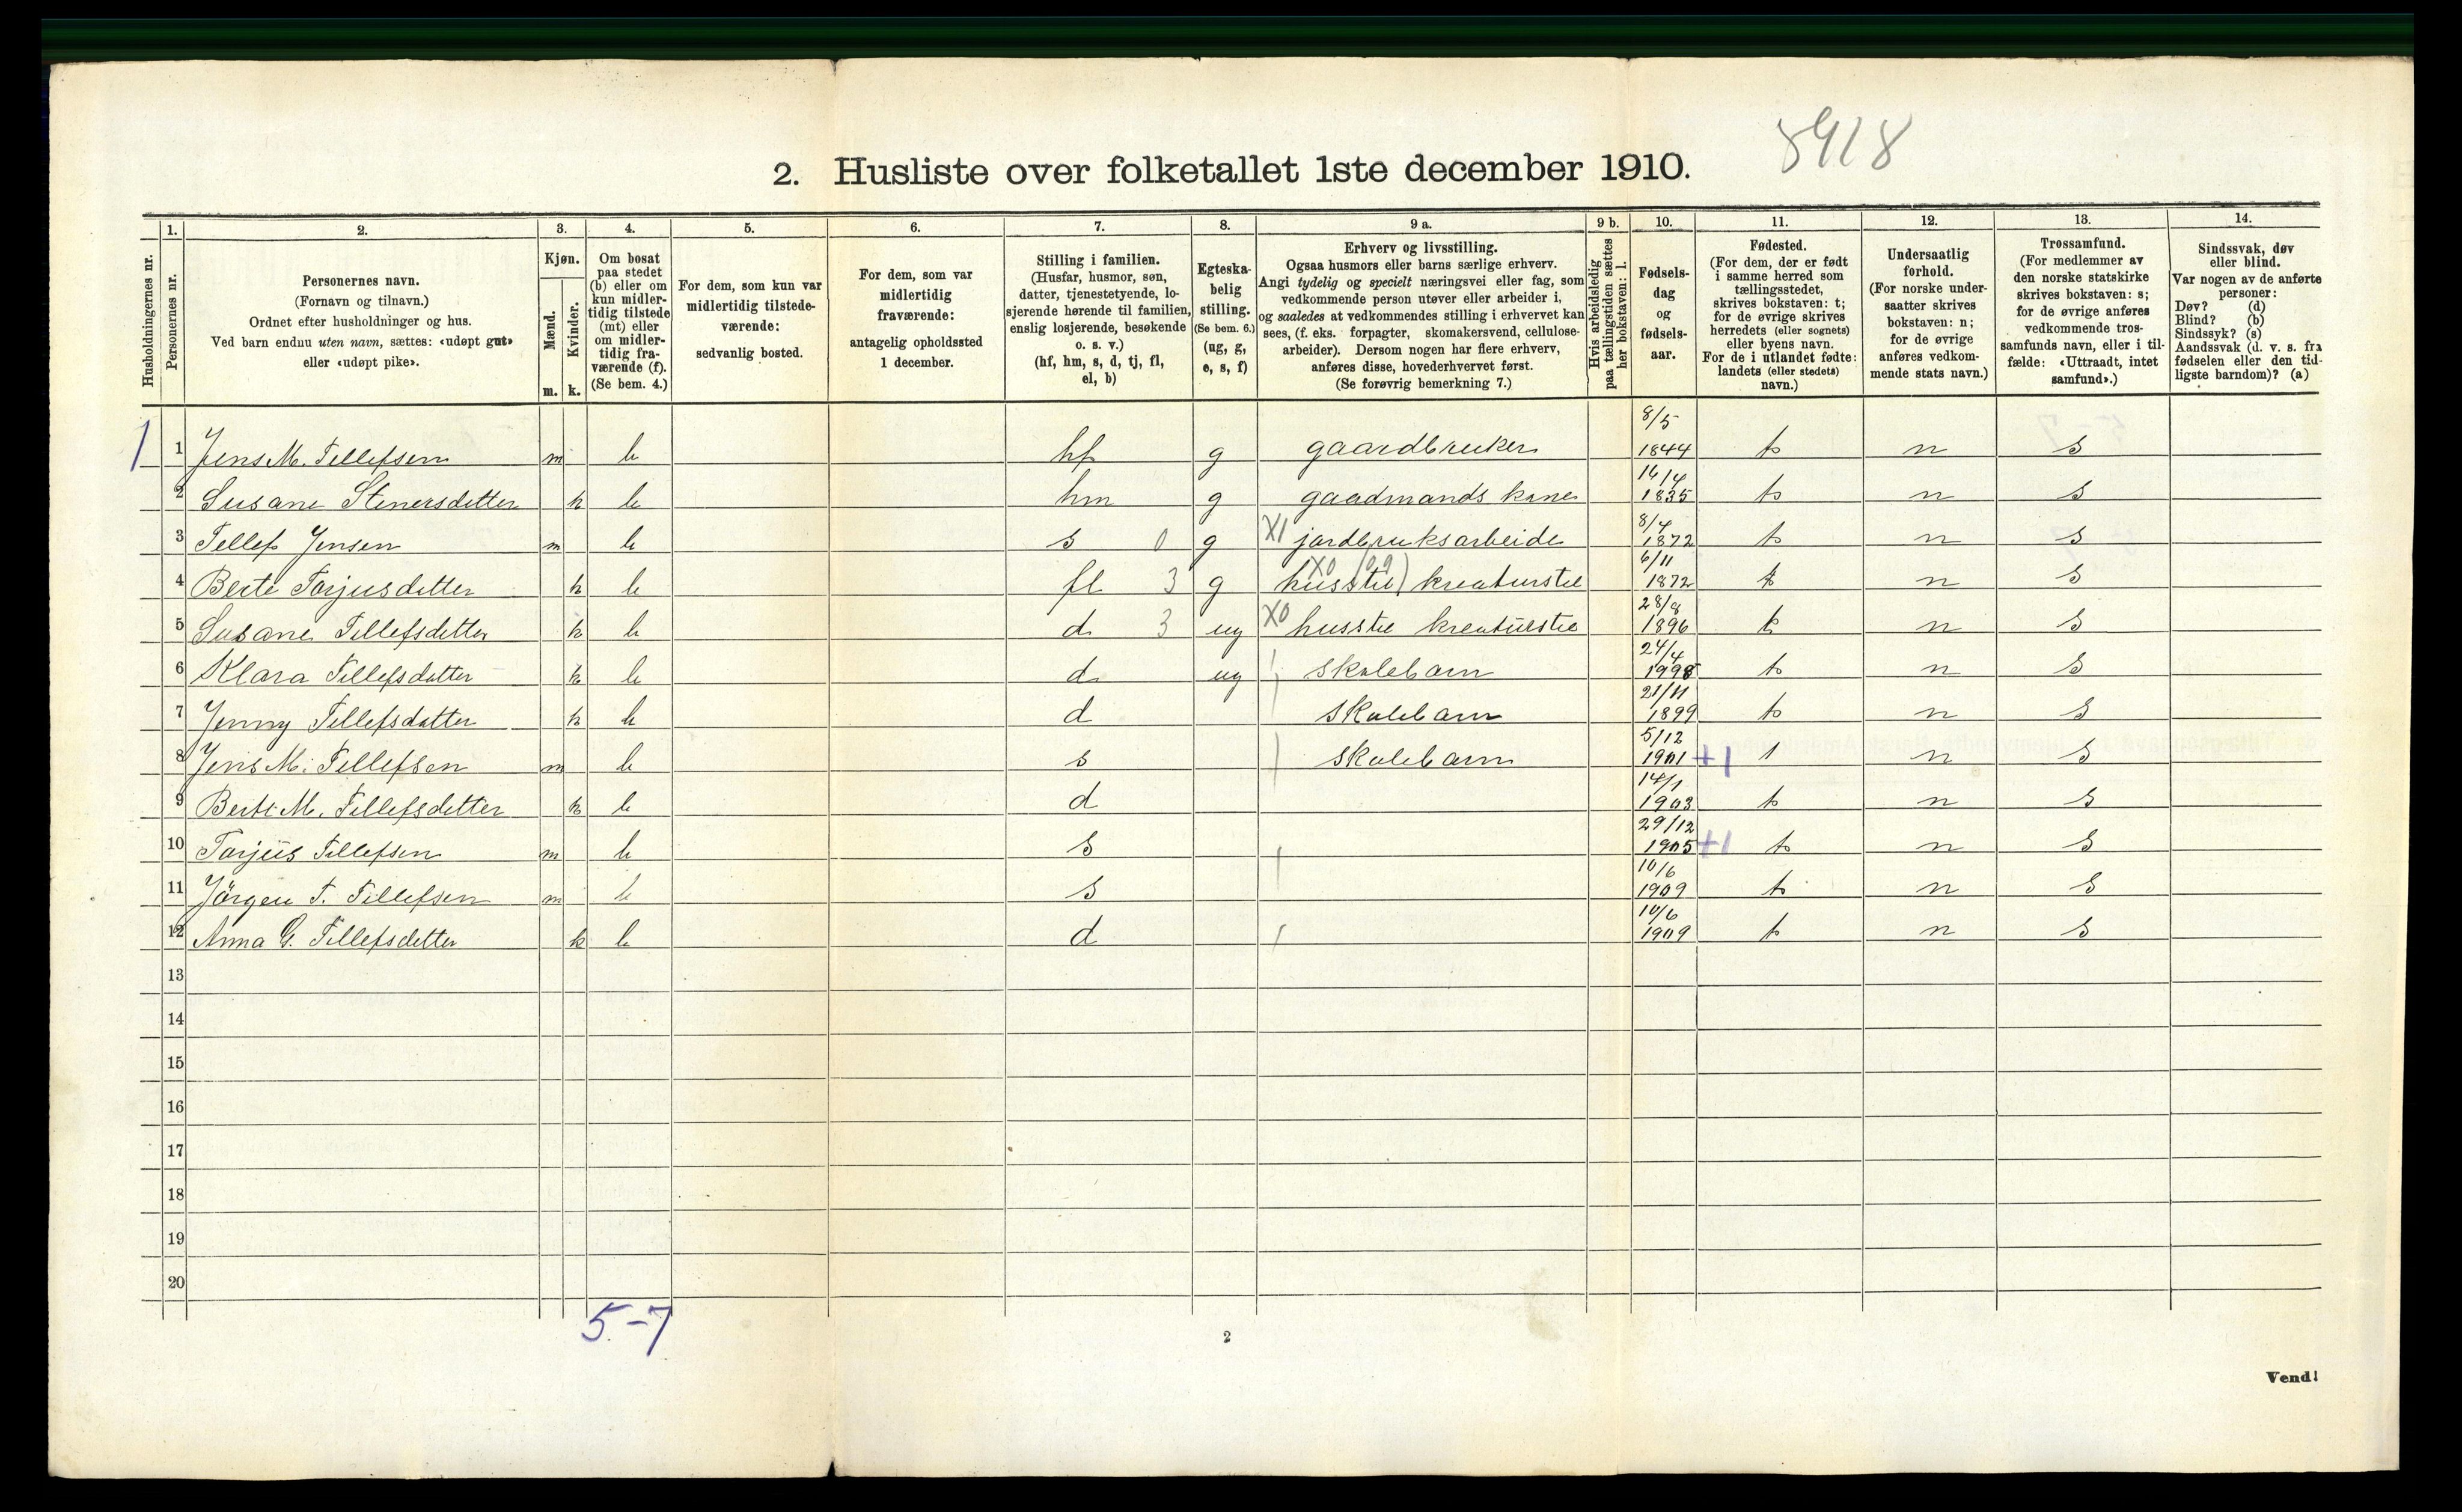 8918
2. Husliste over folketallet 1ste december 1910.
Husholdningernes nr.
1.
Personernes nr.
2.
Personernes navn.
(Fornavn og tilnavn.)
Ordnet efter husholdninger og hus.
Ved barn endnu uten navn, sættes: «udøpt gut»
eller «udøpt pike».
3.
Kjøn.
Mænd.
Kvinder.
m. k.
4.
Om bosat
paa stedet
(b) eller om
kun midler-
tidig tilstede
(mt) eller
om midler-
tidig fra-
værende (f).
(Se bem. 4.)
5.
For dem, som kun var
midlertidig tilstede-
værende:
sedvanlig bosted.
6.
For dem, som var
midlertidig
fraværende:
antagelig opholdssted
1 december.
7.
Stilling i familien.
(Husfar, husmor, søn,
datter, tjenestetyende, lo-
sjerende hørende til familien,
enslig losjerende, besøkende
o. s. v.)
(hf, hm, s, d, tj, fl,
el, b)
8.
Egteska-
belig
stilling.
(Se bem. 6.)
(ug, g,
e, s, f)
9 a.
Erhverv og livsstilling.
Ogsaa husmors eller barns særlige erhverv.
Angi tydelig og specielt næringsvei eller fag, som
vedkommende person utøver eller arbeider i,
og saaledes at vedkommendes stilling i erhvervet kan
sees, (f. eks. forpagter, skomakersvend, cellulose-
arbeider). Dersom nogen har flere erhverv,
anføres disse, hovederhvervet først.
(Se forøvrig bemerkning 7.)
9 b.
Hvis arbeidsledig
paa tællingstiden sættes
her bokstaven: l.
10.
Fødsels-
dag
og
fødsels-
aar.
11.
Fødested.
(For dem, der er født
i samme herred som
tællingsstedet,
skrives bokstaven: t;
for de øvrige skrives
herredets (eller sognets)
eller byens navn.
For de i utlandet fødte:
landets (eller stedets)
navn.)
12.
Undersaatlig
forhold.
(For norske under-
saatter skrives
bokstaven: n;
for de øvrige
anføres vedkom-
mende stats navn.)
13.
Trossamfund.
(For medlemmer av
den norske statskirke
skrives bokstaven: s;
for de øvrige anføres
vedkommende tros-
samfunds navn, eller i til-
fælde: «Uttraadt, intet
samfund».)
14.
Sindssvak, døv
eller blind.
Var nogen av de anførte
personer:
Døv? (d)
Blind? (b)
Sindssyk? (s)
Aandssvak (d. v. s. fra
fødselen eller den tid-
ligste barndom)? (a)
1 1 Jens M. Tellefsen m b hf g gaardbruker 8/5 1844 t n s
2 Susane Stenersdatter k b hm g gaadmands kone 16/4 1835 t n s
3 Tellef Jensen m b s 0 g X1 jordbruksarbeide 8/4 1872 t n s
4 Berte Torjusdatter k b fl 3 g X0 husstel kreaturstel 6/11 1872 t n s
5 Susane Tellefsdatter k b d 3 ug X0 husstel kreaturstel 28/8 1896 t n s
6 Klara Tellefsdatter k b d ug skolebarn 24/4 1998 t n s
7 Jenny Tellefsdatter k b d skolebarn 21/11 1899 t n s
8 Jens M. Tellefsen m b s skolebarn 5/12 1901 +1 t n s
9 Berte M. Tellefsdatter k b d 14/1 1903 t n s
10 Torjus Tellefsen m b s 29/12 1905 +1 t n s
11 Jörgen T. Tellefsen m b s 10/6 1909 t n s
12 Anna G. Tellefsdatter k b d 10/6 1909 t n s
13
14
15
16
17
18
19
20
5-7
2
Vend!